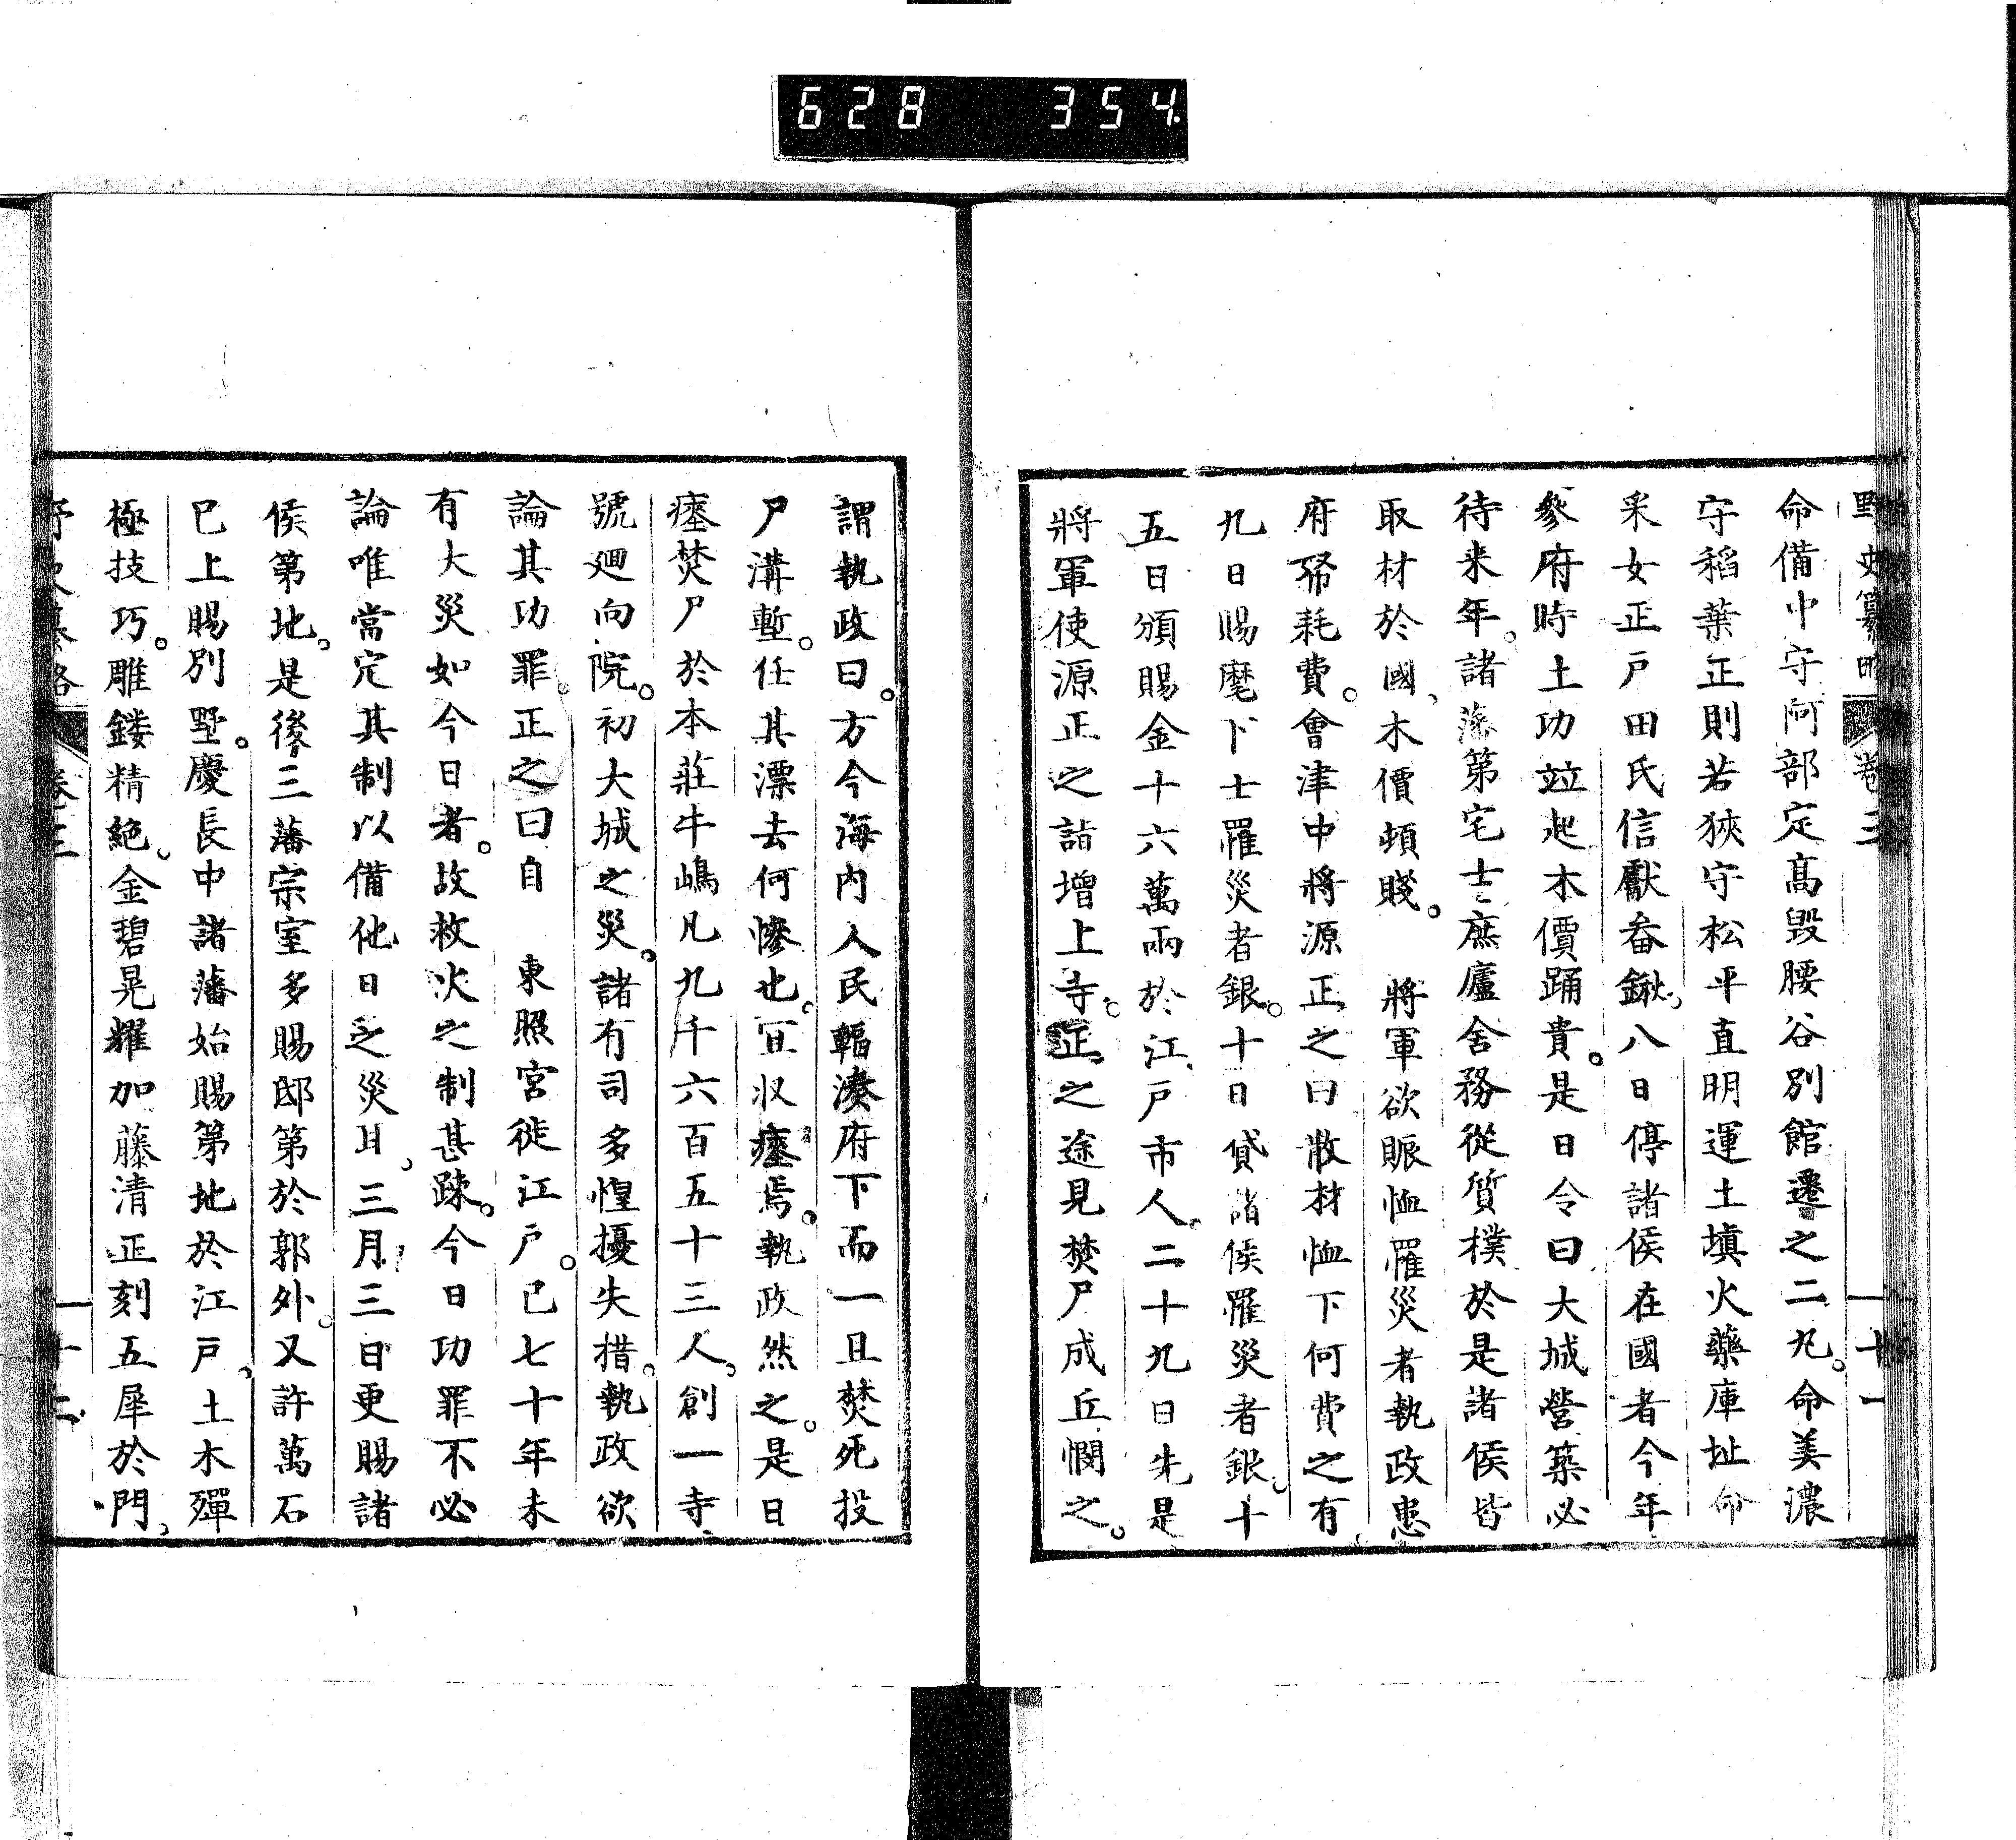 628 354.
野史纂略 卷三 十一
命備中守阿部定高毀腰谷別館遷之二丸。命美濃
守稻葉正則若狹守松平直明運土塡火藥庫址命
采女正戸田氏信獻畚鍬。八日停諸侯在國者今年
參府時土功竝起木價踊貴。是日令曰大城營築必
待来年。諸藩第宅士庶廬舍務從質樸於是諸侯皆
取材於國、木價頓賤。 將軍欲賑恤罹災者執政患
府帑耗費。會津中將源正之曰散材恤下何費之有、
九日賜麾下士罹災者銀。十日貸諸侯罹災者銀。十
五日頒賜金十六萬兩於江戸市人。二十九日先是
將軍使源正之詣增上寺。正之途見焚尸成丘憫之。
謂執政曰。方今海内人民輻湊府下而一旦焚死投
尸溝塹。任其漂去何慘也。宜收瘞焉。執政然之。是日
瘞焚尸於本莊牛嶋凡九千六百五十三人。創一寺、
號廻向院。初大城之災。諸有司多惶擾失措。執政欲
論其功罪。正之曰自 東照宮徙江戸。已七十年未
有大災如今日者。故救火之制甚疎。今日功罪不必
論唯當定其制以備他日之災耳。三月三日更賜諸
侯第地。是後三藩宗室多賜邸第於郭外。又許萬石
已上賜別墅。慶長中諸藩始賜第地於江戸。土木殫
極技巧。雕鏤精絶。金碧晃耀加藤清正刻五犀於門。
野史纂略 卷三 十二